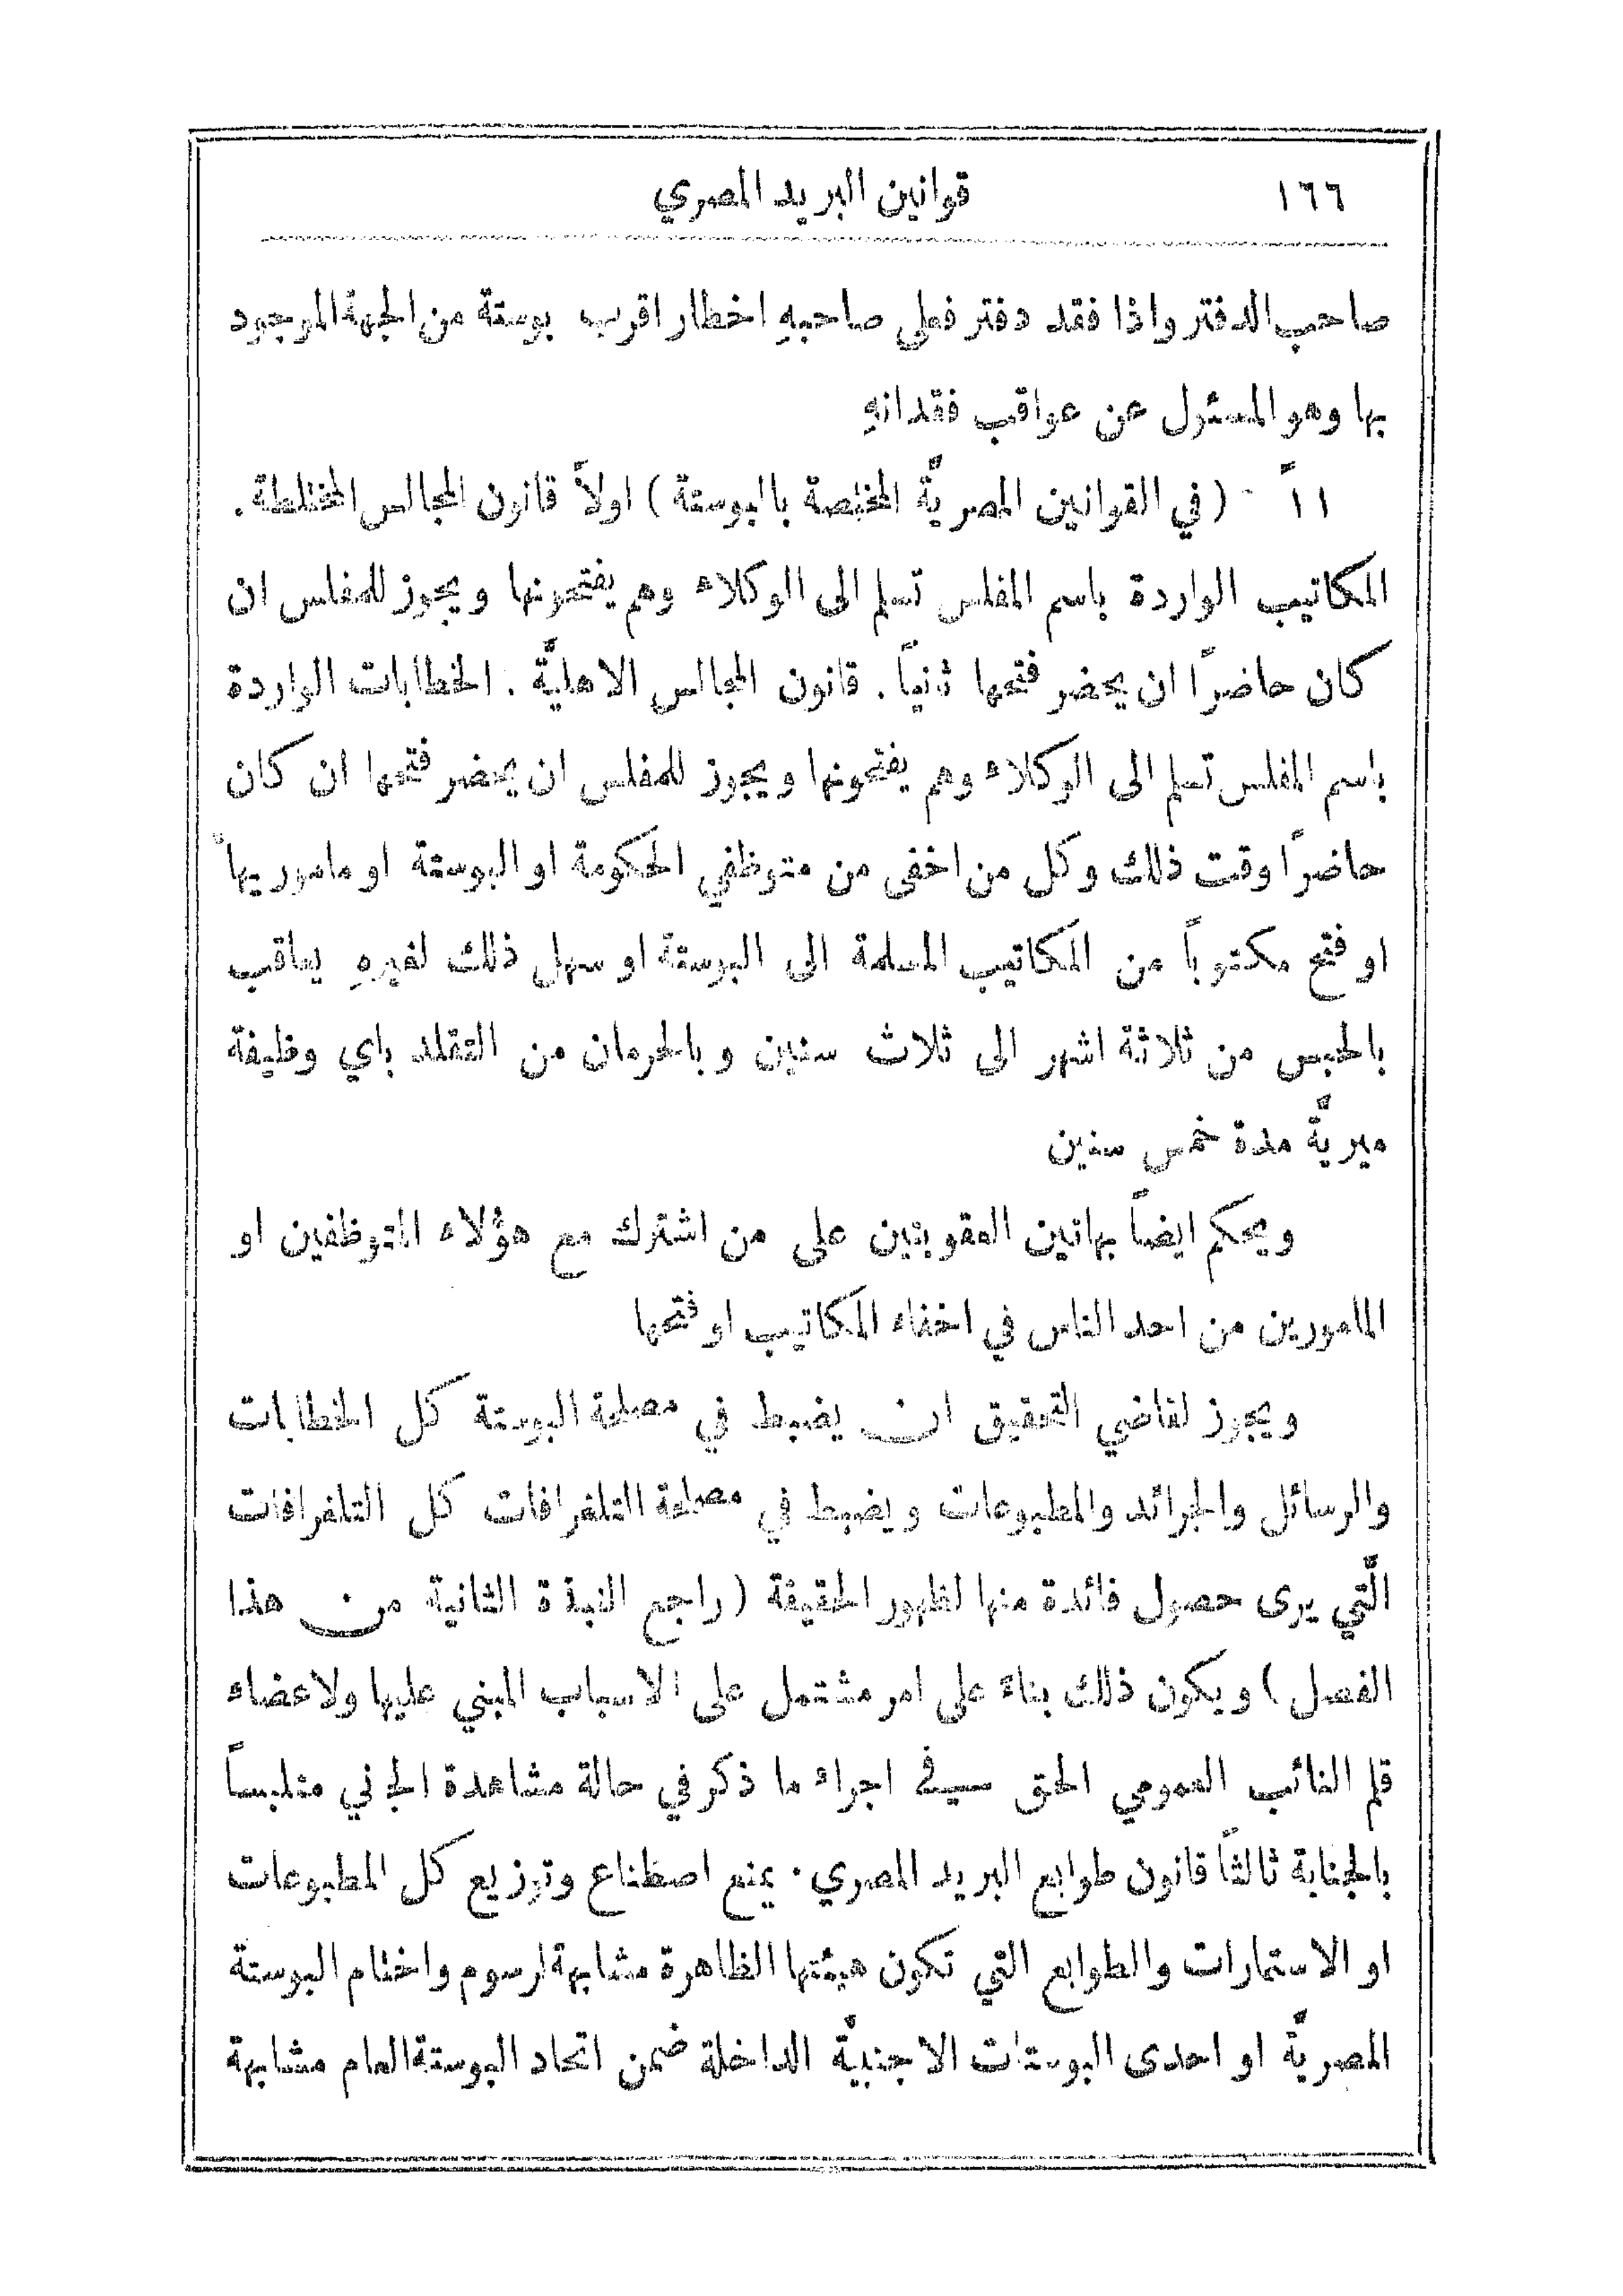 ١٦٦ قوانين البريد المصري
صاحب الدفتر واذا فقد دفتر فعلى صاحبهِ اخطار اقرب بوستة من الجهة الموجود
بها وهو المسئول عن عواقب فقدانهِ
١١ً - (في القوانين المصريَّة المختصة بالبوستة) اولاً قانون المجالس المختلطة.
المكاتيب الواردة باسم المفلس تسلم الى الوكلاء وهم يفتحونها ويجوز للمفلس ان
كان حاضرًا ان يحضر فتحها ثانياً. قانون المجالس الاهليَّة. الخطابات الواردة
باسم المفلس تسلم الى الوكلاء وهم يفتحونها ويجوز للمفلس ان يحضر فتحها ان كان
حاضرًا وقت ذلك وكل من اخفى من متوظفي الحكومة او البوستة او ماموريها
او فتح مكتوباً من المكاتيب المسلمة الى البوستة او سهل ذلك لغيرهِ يعاقب
بالحبس من ثلاثة اشهر الى ثلاث سنين وبالحرمان من التقلد باي وظيفة
ميريَّة مدة خمس سنين
ويحكم ايضاً بهاتين العقوبتين على من اشترك مع هؤلاء المتوظفين او
المامورين من احد الناس في اخفاء المكاتيب او فتحها
ويجوز لقاضي التحقيق ان يضبط في مصلحة البوستة كل الخطابات
والرسائل والجرائد والمطبوعات ويضبط في مصلحة التلغرافات كل التلغرافات
الَّتي يرى حصول فائدة منها لظهور الحقيقة (راجع النبذة الثانية من هذا
الفصل) ويكون ذلك بناءً على امر مشتمل على الاسباب المبني عليها ولاعضاء
قلم النائب العمومي الحق في اجراء ما ذكر في حالة مشاهدة الجاني متلبساً
بالجناية ثالثاً قانون طوابع البريد المصري. يمنع اصطناع وتوزيع كل المطبوعات
او الاستمارات والطوابع التي تكون هيئتها الظاهرة مشابهة لرسوم واختام البوستة
المصريَّة او احدى البوستات الاجنبيَّة الداخلة ضمن اتحاد البوستة العام مشابهة